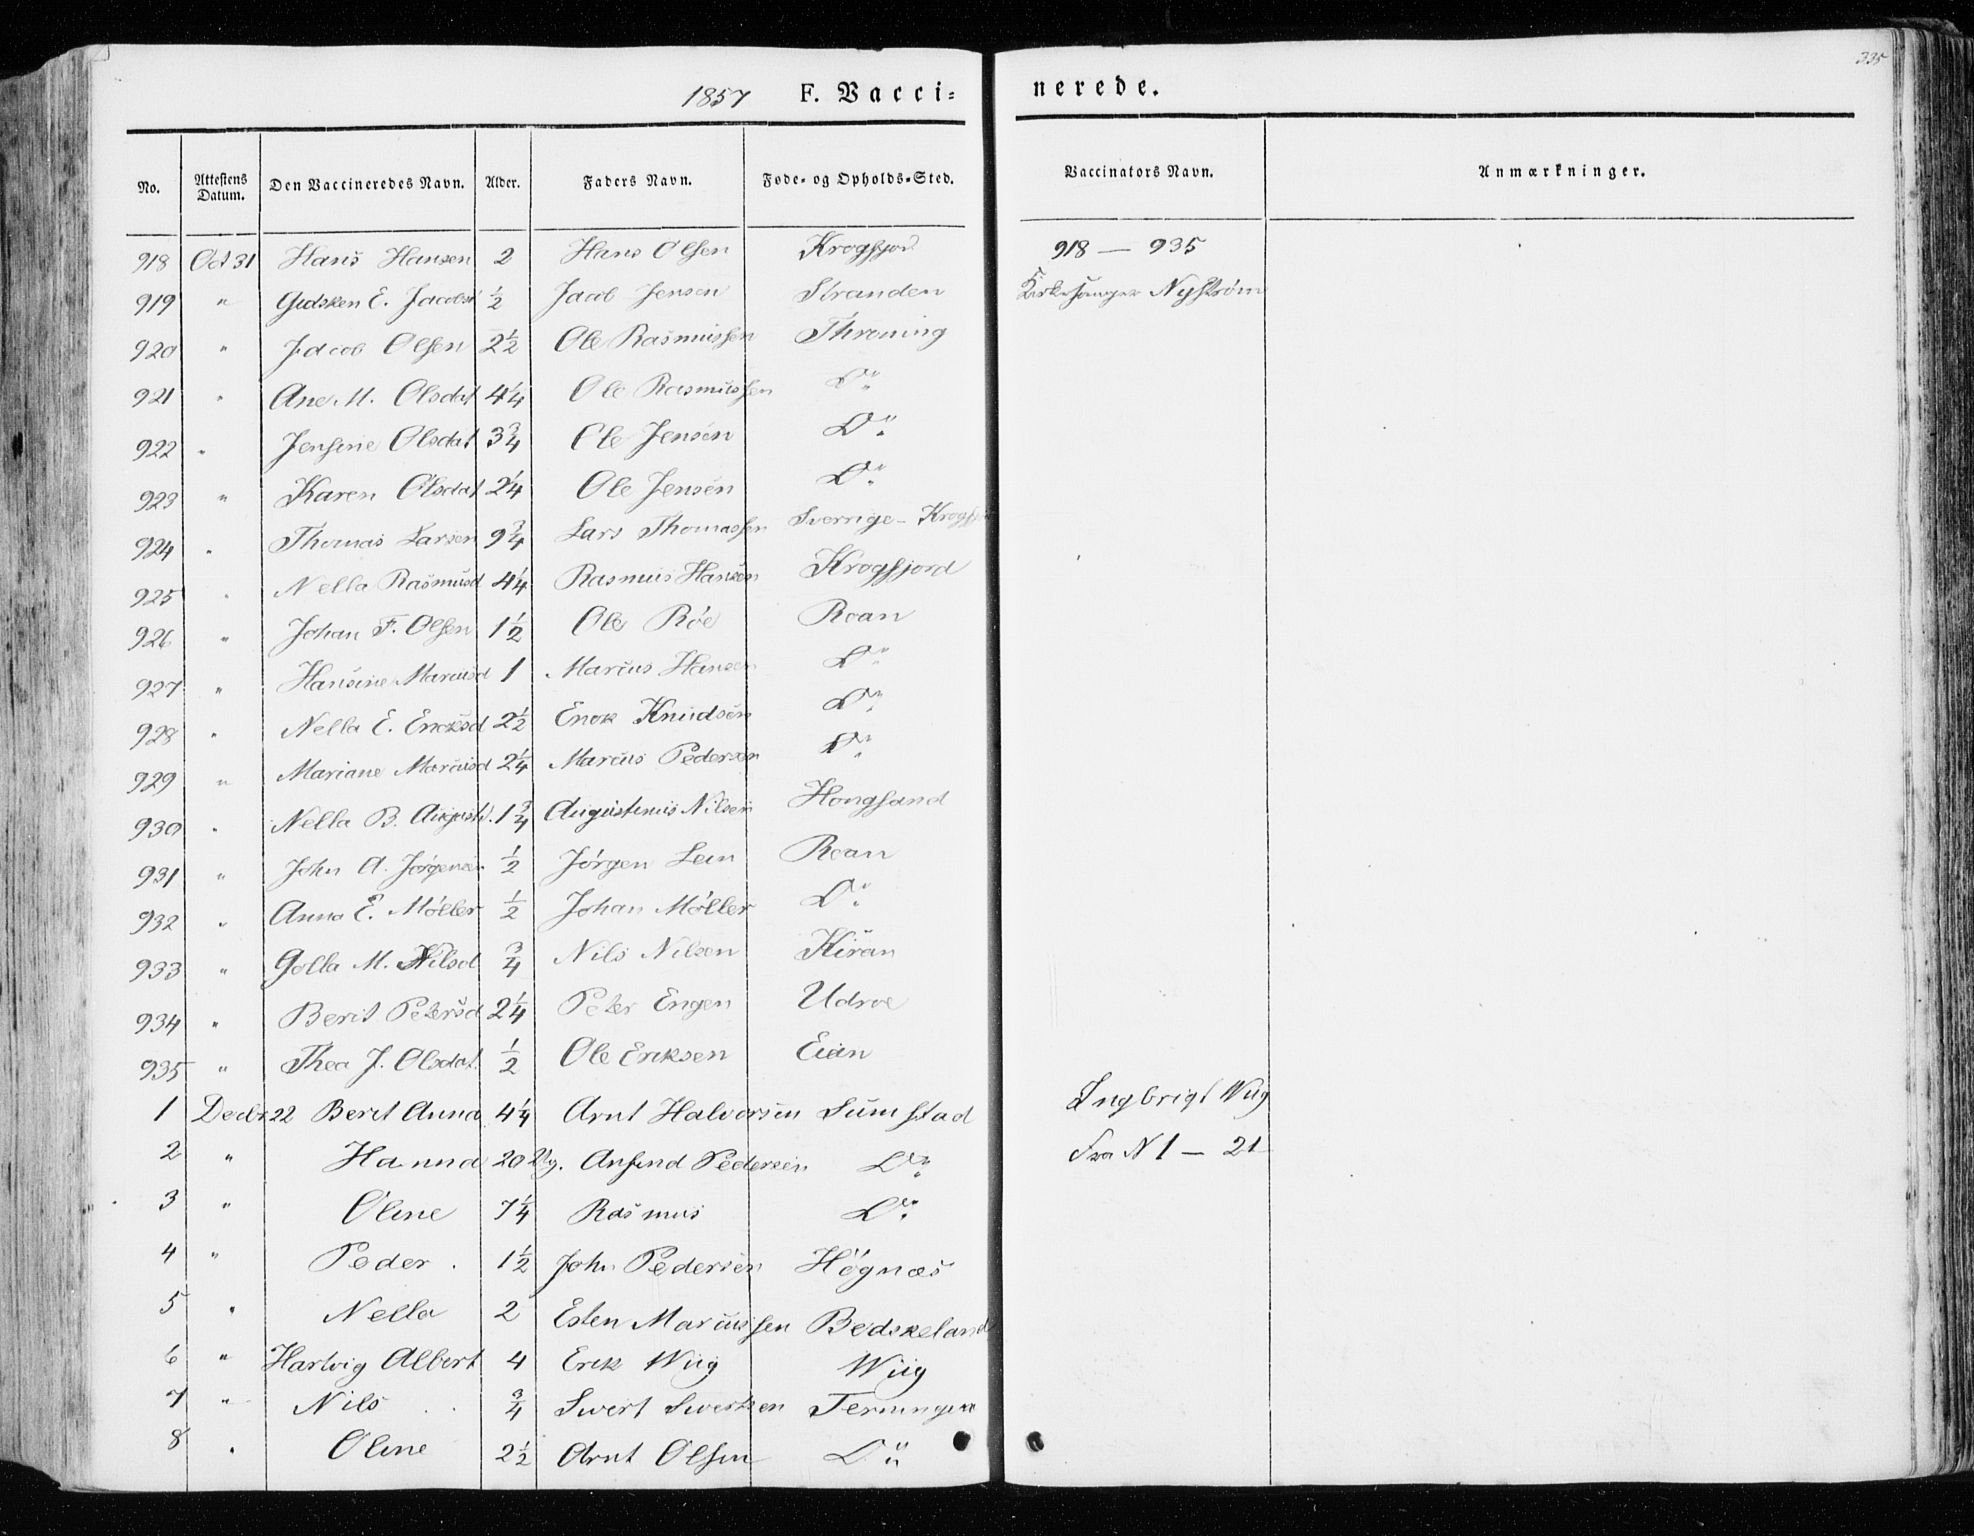 335
1857 F. Vacci= nerede.
No. Attestens Datum. Den Vaccineredes Navn. Alder. Faders Navn. Føde- og Opholds-Sted. Vaccinators Navn. Anmærkninger.
918 Oct 31 Hans Hansen 2 Hans Olsen Krogfjord 918 — 935
919 " Gidsken E. Jacobs 1/2 Jacob Jensen Stranden Kirkesanger Nystrøm
920 " Jacob Olsen 2 1/2 Ole Rasmussen Throning
921 " Ane M. Olsdat 4 1/4 Ole Rasmussen Do
922 " Jensine Olsdat 3 3/4 Ole Jensen Do
923 " Karen Olsdat 2 1/4 Ole Jensen Do
924 " Thomas Larsen 9 3/4 Lars Thomassen Sverrige - Krogfj
925 " Nella Rasmusd 4 1/4 Rasmus Hansen Krogfjord
926 " Johan F. Olsen 1 1/2 Ole Röe Roan
927 " Hansine Marcusd 1 Marcus Hansen Do
928 " Nella E. Enoksd 2 1/2 Enok Knudsen Do
929 " Mariane Marcusd 2 1/4 Marcus Pedersen Do
930 " Nella B. Augustd. 1 3/4 Augustinus Nilsen Hongsand
931 " John A. Jörgensen 1/2 Jörgen Lein Roan
932 " Anna E. Möller 1/2 Johan Möller Do
933 " Golla M. Nilsd 3/4 Nils Nilsen Kiran
934 " Berit Petersd 2 1/4 Peter Engen Udroe
935 " Thea J. Olsdat. 1/2 Ole Eriksen Eian
1 Decbr 22 Berit Anna 4 1/4 Arnt Halvorsen Sumstad Ingbrigt Wiig
2 " Hanna 20 Ug. Ansend Pedersen Do Fra N 1 — 21
3 " Oline 7 1/4 Rasmus Do
4 " Peder . 1 1/2 John Pedersen Högnæs
5 " Nella 2 Esten Marcussen Bedskeland
6 " Hartvig Albert 4 Erik Wiig Wiig
7 " Nils 3/4 Sivert Sivertsen Terningen
8 " Oline 2 1/2 Arnt Olsen Do